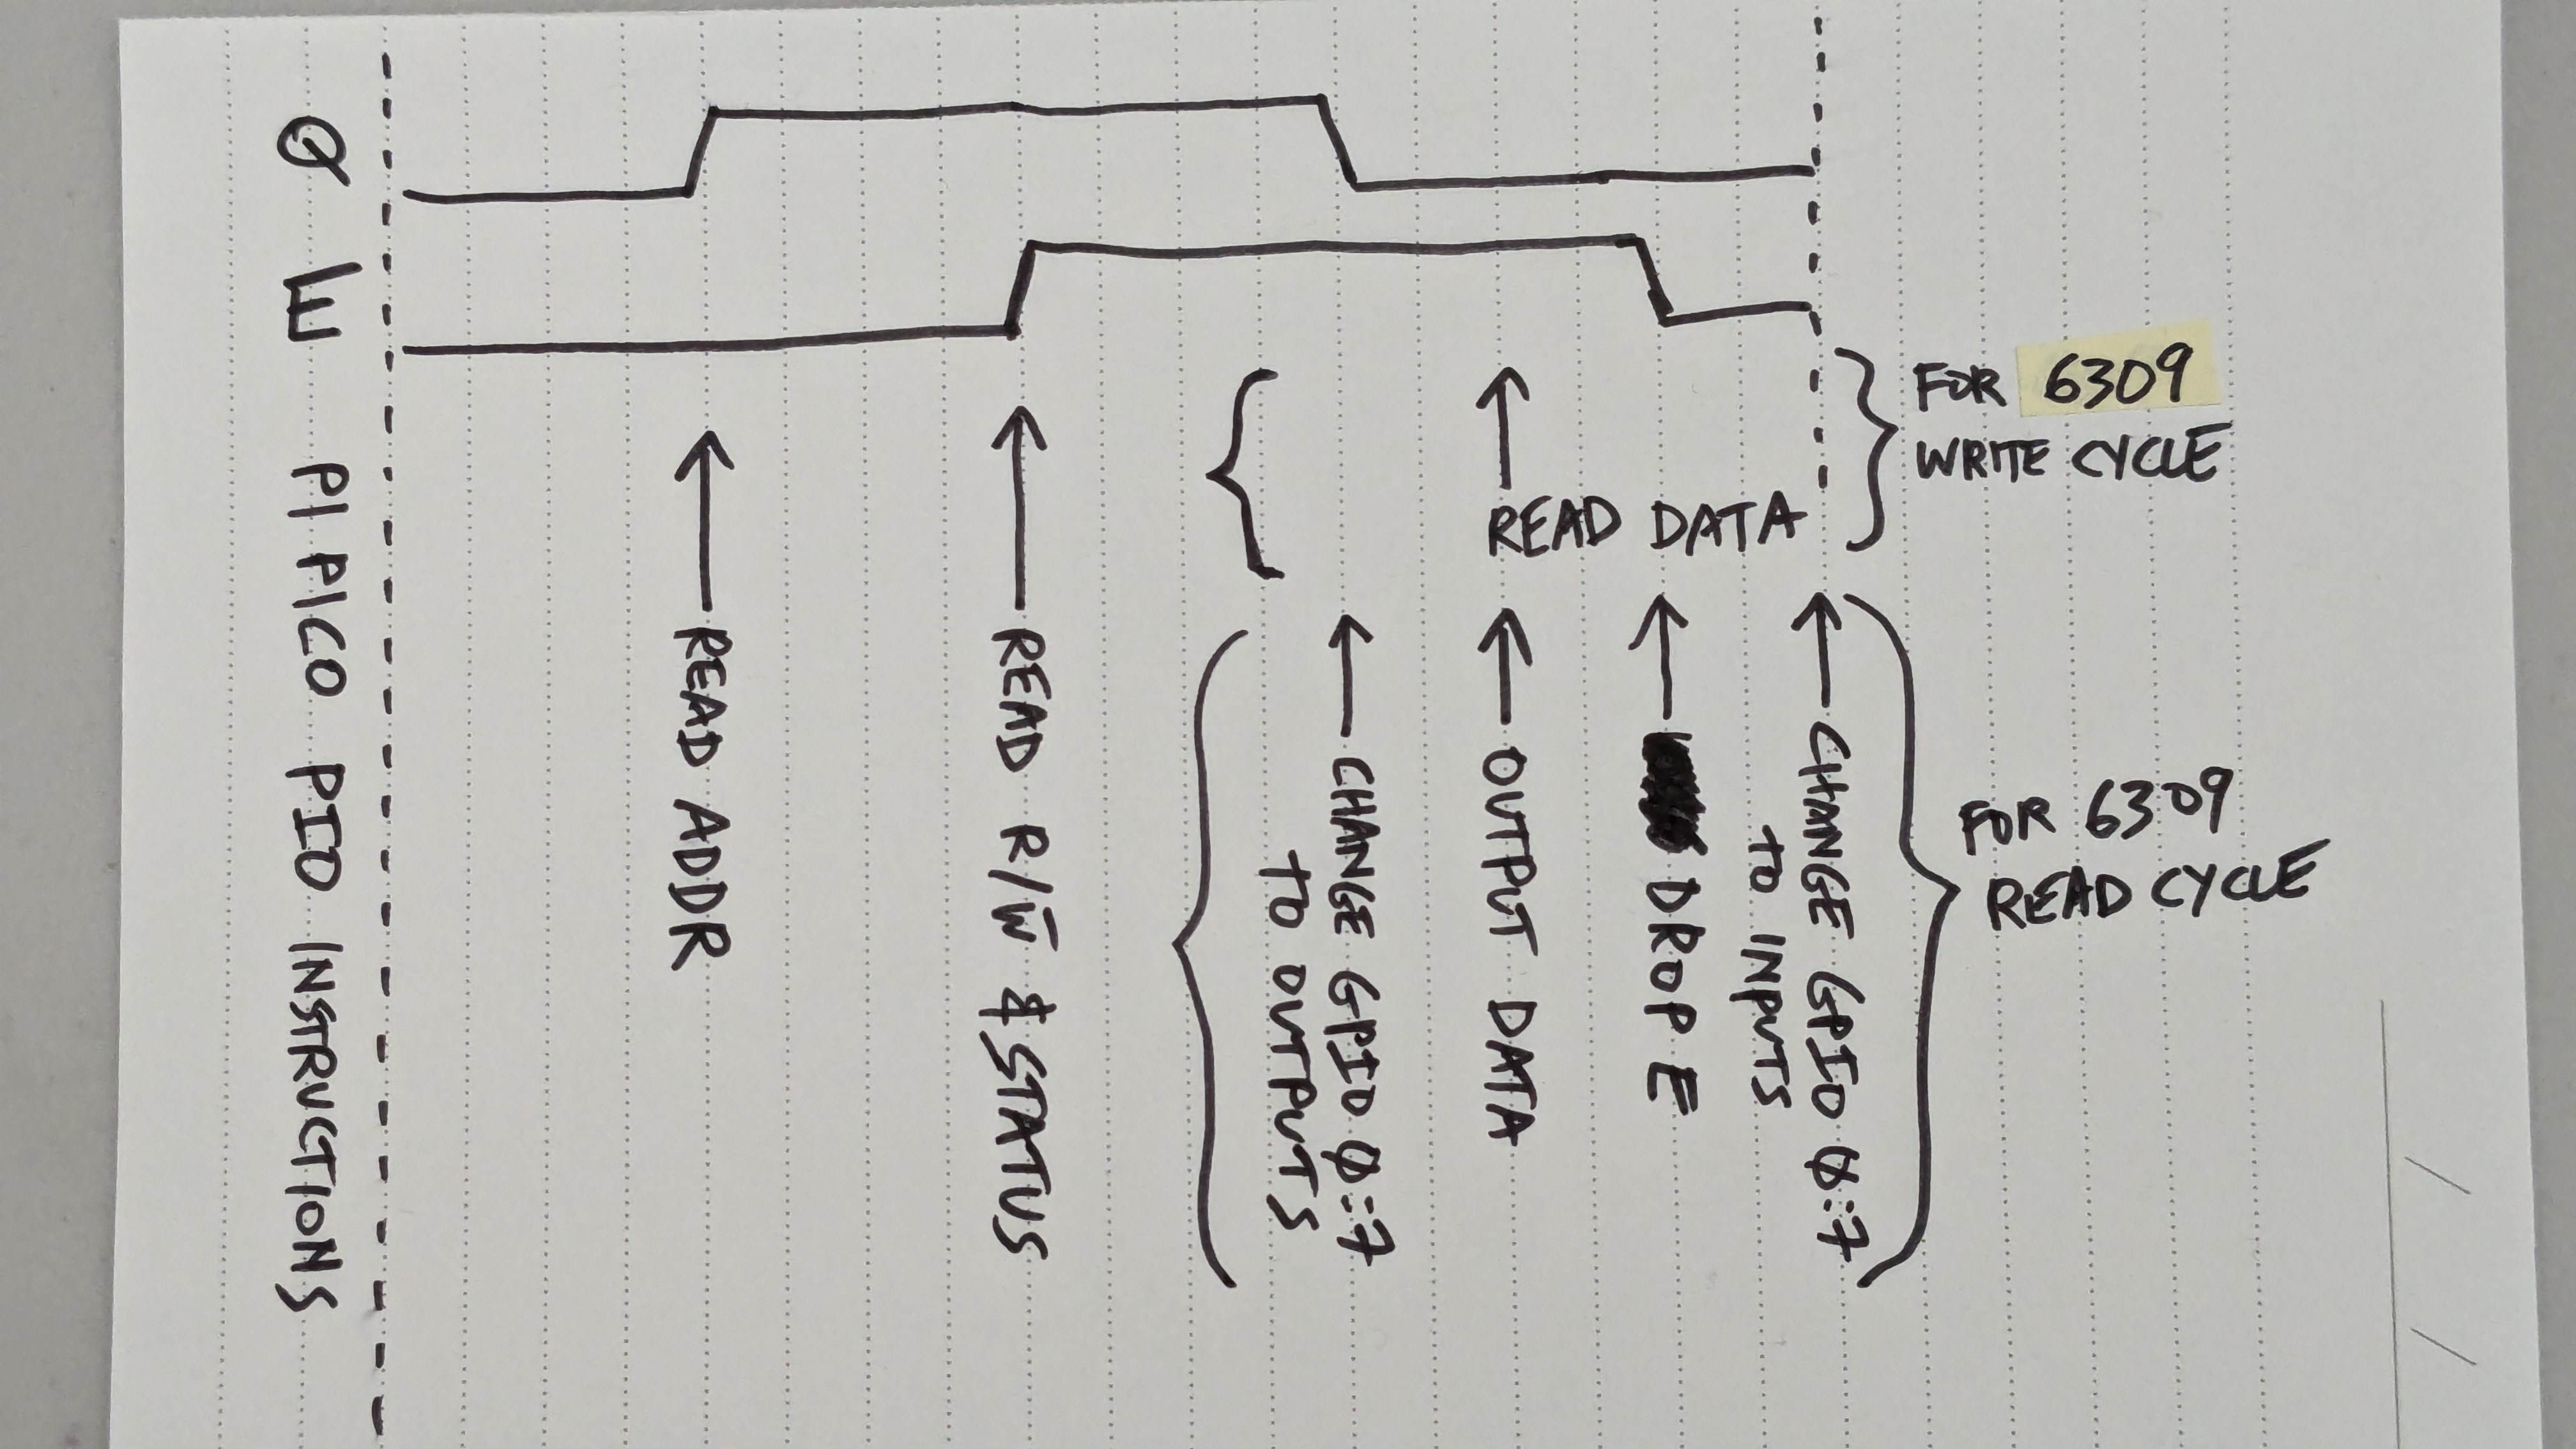 Q
E
PI PICO PIO INSTRUCTIONS
READ ADDR
READ R/W̅ & STATUS
READ DATA
FOR 6309
WRITE CYCLE
CHANGE GPIO 0::7
TO OUTPUTS
OUTPUT DATA
DROP E
CHANGE GPIO 0::7
TO INPUTS
FOR 6309
READ CYCLE